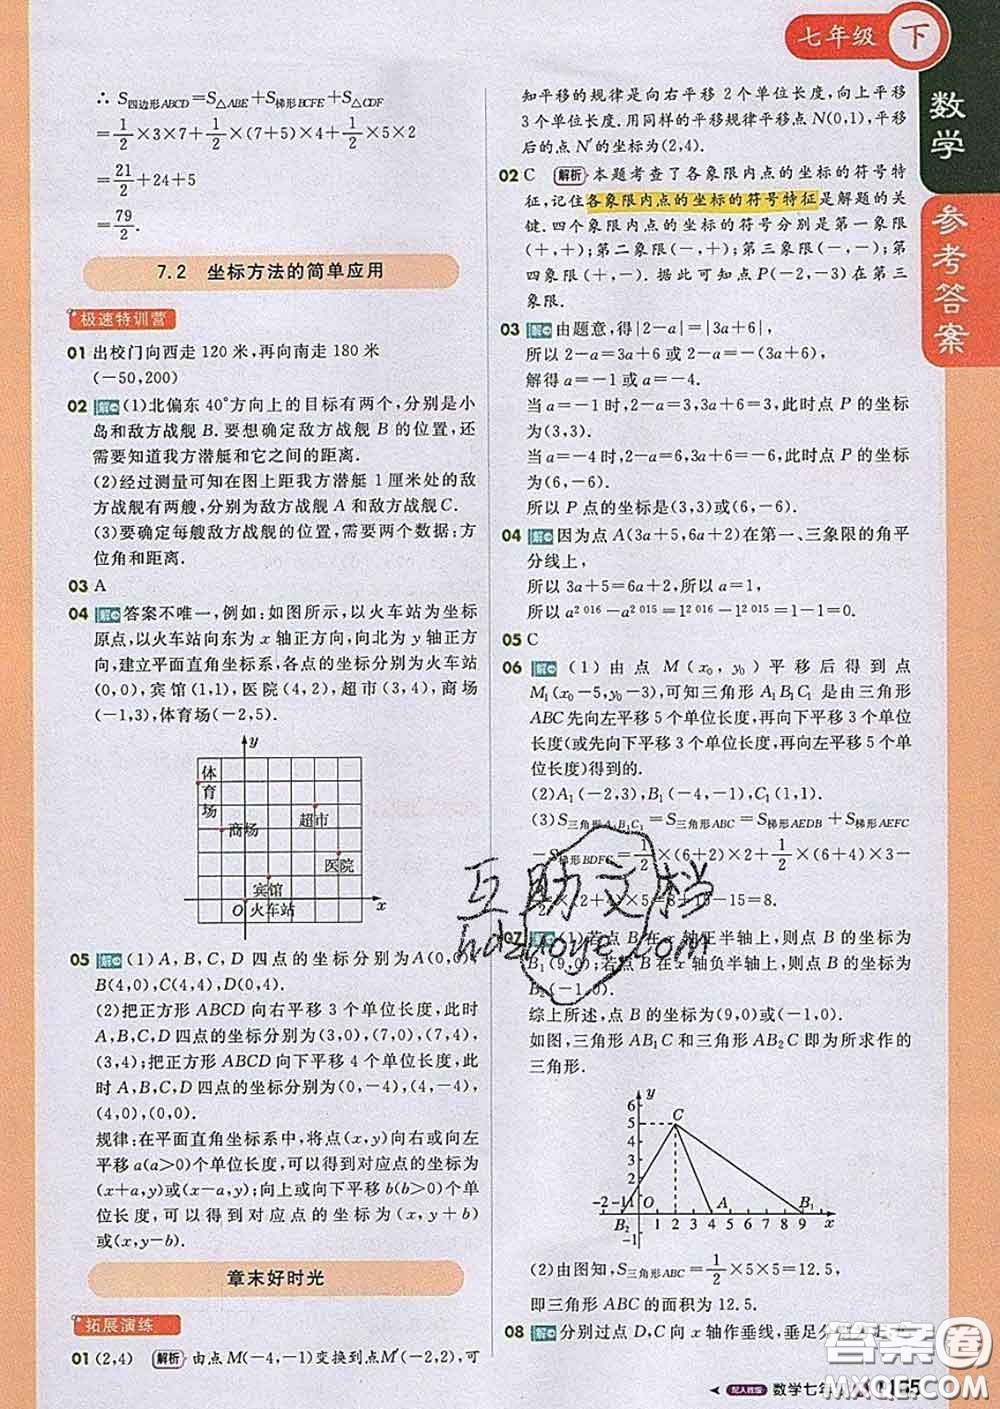 七年级 下
数学
参考答案
∴ S四边形ABCD=S△ABE+S梯形BCFE+S△CDF
=1/2×3×7+1/2×(7+5)×4+1/2×5×2
=21/2+24+5
=79/2.
7.2 坐标方法的简单应用
极速特训营
01 出校门向西走 120 米,再向南走 180 米
(-50,200)
02 解 (1)北偏东 40°方向上的目标有两个,分别是小
岛和敌方战舰 B.要想确定敌方战舰 B 的位置,还
需要知道我方潜艇和它之间的距离.
(2)经过测量可知在图上距我方潜艇 1 厘米处的敌
方战舰有两艘,分别为敌方战舰 A 和敌方战舰 C.
(3)要确定每艘敌方战舰的位置,需要两个数据:方
位角和距离.
03 A
04 解 答案不唯一,例如:如图所示,以火车站为坐标
原点,以火车站向东为 x 轴正方向,向北为 y 轴正方
向,建立平面直角坐标系,各点的坐标分别为火车站
(0,0),宾馆(1,1),医院(4,2),超市(3,4),商场
(-1,3),体育场(-2,5).
y
体
育
场
超市
商场
医院
宾馆
O 火车站 x
05 解 (1)A,B,C,D 四点的坐标分别为A(0,0),
B(4,0),C(4,4),D(0,4).
(2)把正方形 ABCD 向右平移 3 个单位长度,此时
A,B,C,D 四点的坐标分别为(3,0),(7,0),(7,4),
(3,4);把正方形 ABCD 向下平移 4 个单位长度,此
时 A,B,C,D 四点的坐标分别为(0,-4),(4,-4),
(4,0),(0,0).
规律:在平面直角坐标系中,将点(x,y)向右或向左
平移 a(a>0)个单位长度,可以得到对应点的坐标为
(x+a,y)或(x-a,y);向上或向下平移 b(b>0)个单
位长度,可以得到对应点的坐标为(x,y+b)
或(x,y-b).
章末好时光
拓展演练
01 (2,4) 解析 由点 M(-4,-1)变换到点M′(-2,2),可
知平移的规律是向右平移 2 个单位长度,向上平移
3 个单位长度.用同样的平移规律平移点 N(0,1),平移
后的点 N′的坐标为(2,4).
02 C 解析 本题考查了各象限内点的坐标的符号特
征,记住各象限内点的坐标的符号特征是解题的关
键.四个象限内点的坐标的符号分别是第一象限
(+,+);第二象限(-,+);第三象限(-,-);第
四象限(+,-).据此可知点 P(-2,-3)在第三
象限.
03 解 由题意,得|2-a|=|3a+6|,
所以 2-a=3a+6 或 2-a=-(3a+6),
解得 a=-1 或 a=-4.
当 a=-1 时,2-a=3,3a+6=3,此时点 P 的坐标
为(3,3).
当 a=-4 时,2-a=6,3a+6=-6,此时点 P 的坐标
为(6,-6).
所以 P 点的坐标为(3,3)或(6,-6).
04 解 因为点 A(3a+5,6a+2)在第一、三象限的角平
分线上,
所以 3a+5=6a+2,所以 a=1,
所以 a^2 016-a^2 015=1^2 016-1^2 015=1-1=0.
05 C
06 解 (1)由点 M(x₀,y₀)平移后得到点
M₁(x₀-5,y₀-3),可知三角形 A₁B₁C₁ 是由三角形
ABC先向左平移 5 个单位长度,再向下平移 3 个单位
长度(或先向下平移 3 个单位长度,再向左平移 5 个单
位长度)得到的.
(2)A₁(-2,3),B₁(-4,-1),C₁(1,1).
(3)S三角形A₁B₁C₁=S三角形ABC=S梯形AEDB+S梯形AEFC
-S梯形BDFC=1/2×(6+2)×2+1/2×(6+4)×3-
×(2+4)×5=8+15-15=8.
07 解 (1)若点 B 在 x 轴正半轴上,则点 B 的坐标为
B₁(9,0);若点 B 在 x 轴负半轴上,则点 B 的坐标为
B₂(-1,0).
综上所述,点 B 的坐标为(9,0)或(-1,0).
如图,三角形 AB₁C 和三角形 AB₂C 即为所求作的
三角形.
y
6
5 C
4
3
2
1
-2 -1 O A B₁
B₂ 1 2 3 4 5 6 7 8 9 x
-1
(2)由图知,S三角形ABC=1/2×5×5=12.5,
即三角形 ABC 的面积为 12.5.
08 解 分别过点 D,C 向 x 轴作垂线,垂足分别
配人教版 数学七年
互助文档
hdzuoye.com
答案圈